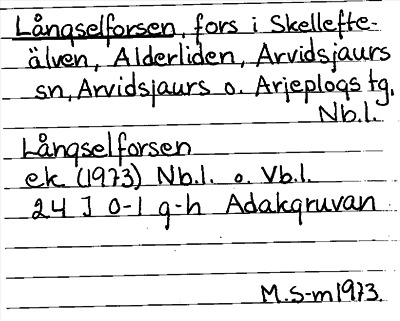 Långselforsen, fors i Skellefte-
älven, Alderliden, Arvidsjaurs
sn, Arvidsjaurs o. Arjeplogs tg,
Nb.l.
Långselforsen
ek (1973) Nb.l. o. Vb.l.
24 J 0-1 g-h Adakgruvan
M.S-m 1973.